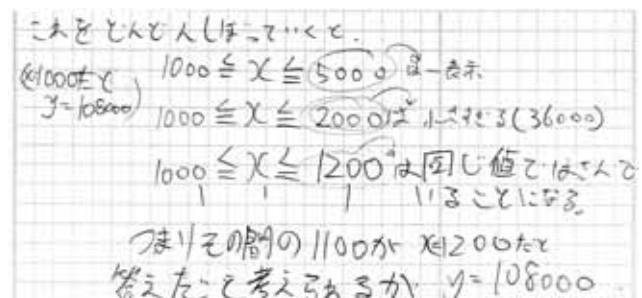 これをどんどんしぼっていくと、
1000≦x≦5000 は 表示
(x=1000だと y=108000)
1000≦x≦2000は 小さすぎる(36000)
1000≦x≦1200は同じ値ではさんで
いることになる。
つまりその間の1100が x=1200だと
答えだ と考えられるが y=108000